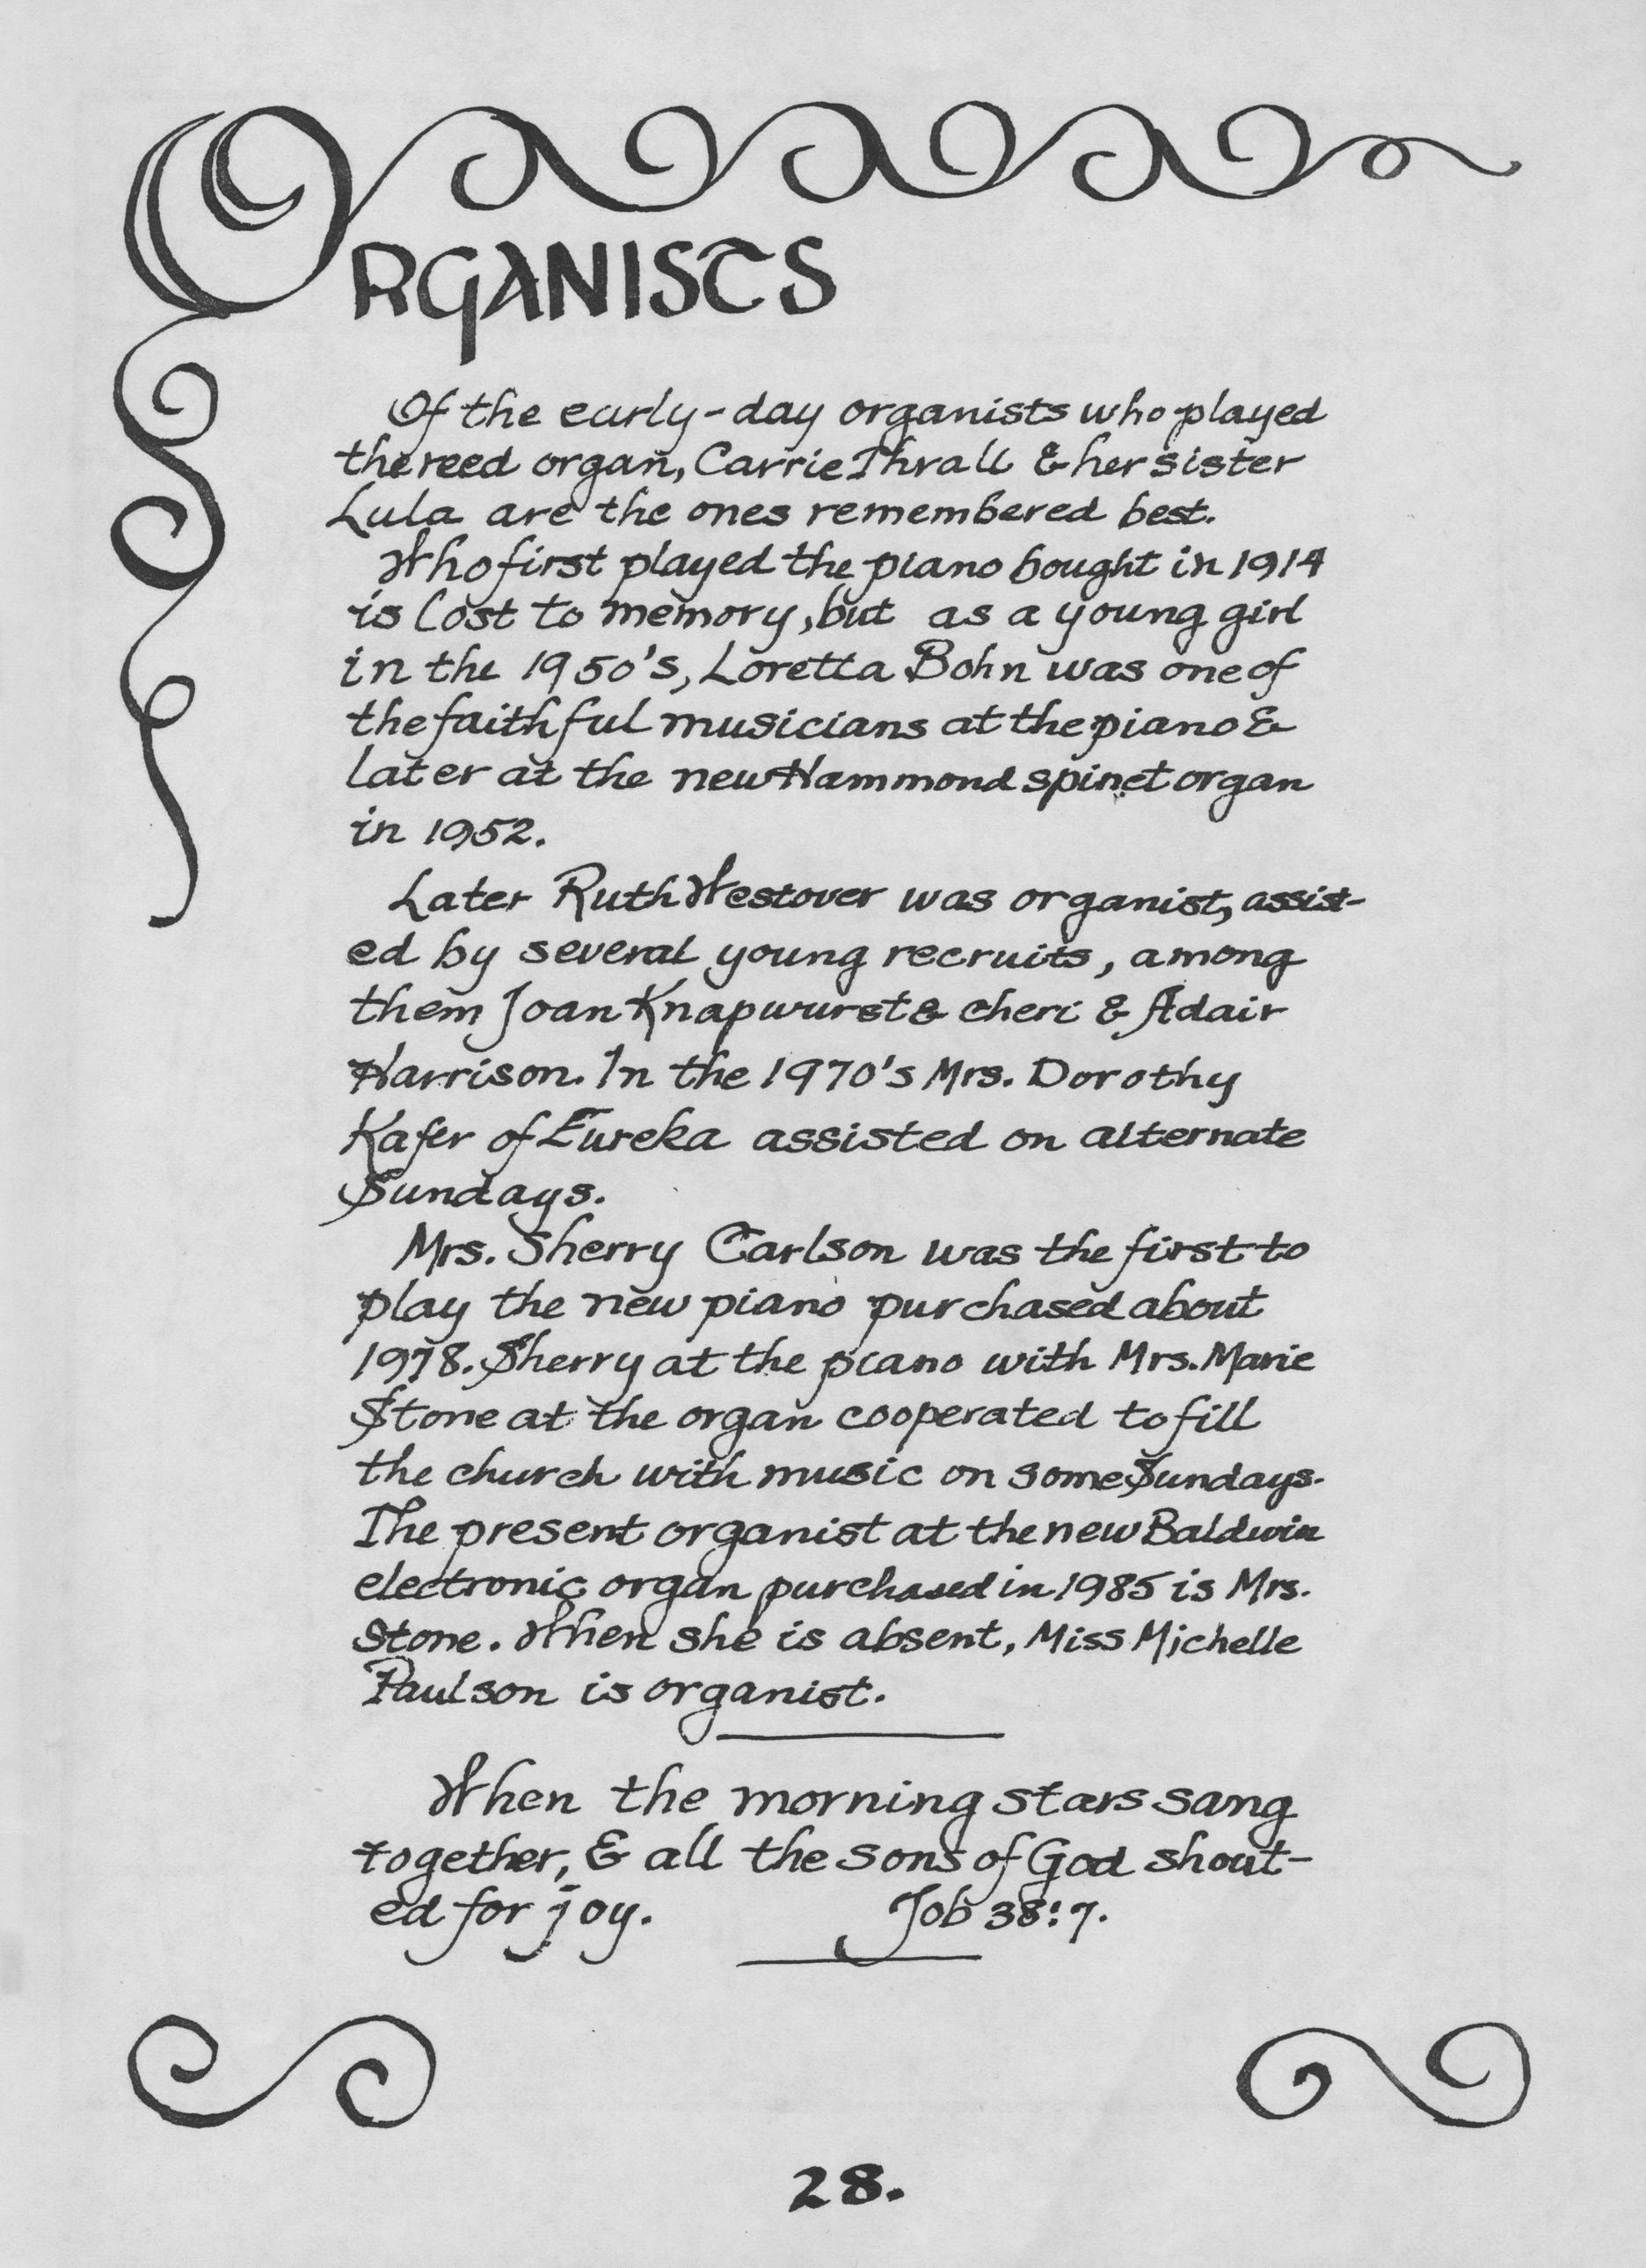 ORGANISTS
Of the early-day organists who played
the reed organ, Carrie Thrall & her sister
Lula are the ones remembered best.
Who first played the piano bought in 1914
is lost to memory, but as a young girl
in the 1950's, Loretta Bohn was one of
the faithful musicians at the piano &
later at the new Hammond spinet organ
in 1952.
Later Ruth Westover was organist, assist-
ed by several young recruits, among
them Joan Knapwurst & Cheri & Adair
Harrison. In the 1970's Mrs. Dorothy
Kafer of Eureka assisted on alternate
Sundays.
Mrs. Sherry Carlson was the first to
play the new piano purchased about
1978. Sherry at the piano with Mrs. Marie
Stone at the organ cooperated to fill
the church with music on some Sundays.
The present organist at the new Baldwin
electronic organ purchased in 1985 is Mrs.
Stone. When she is absent, Miss Michelle
Paulson is organist.
When the morning stars sang
together, & all the sons of God shout-
ed for joy. Job 38:7.
28.